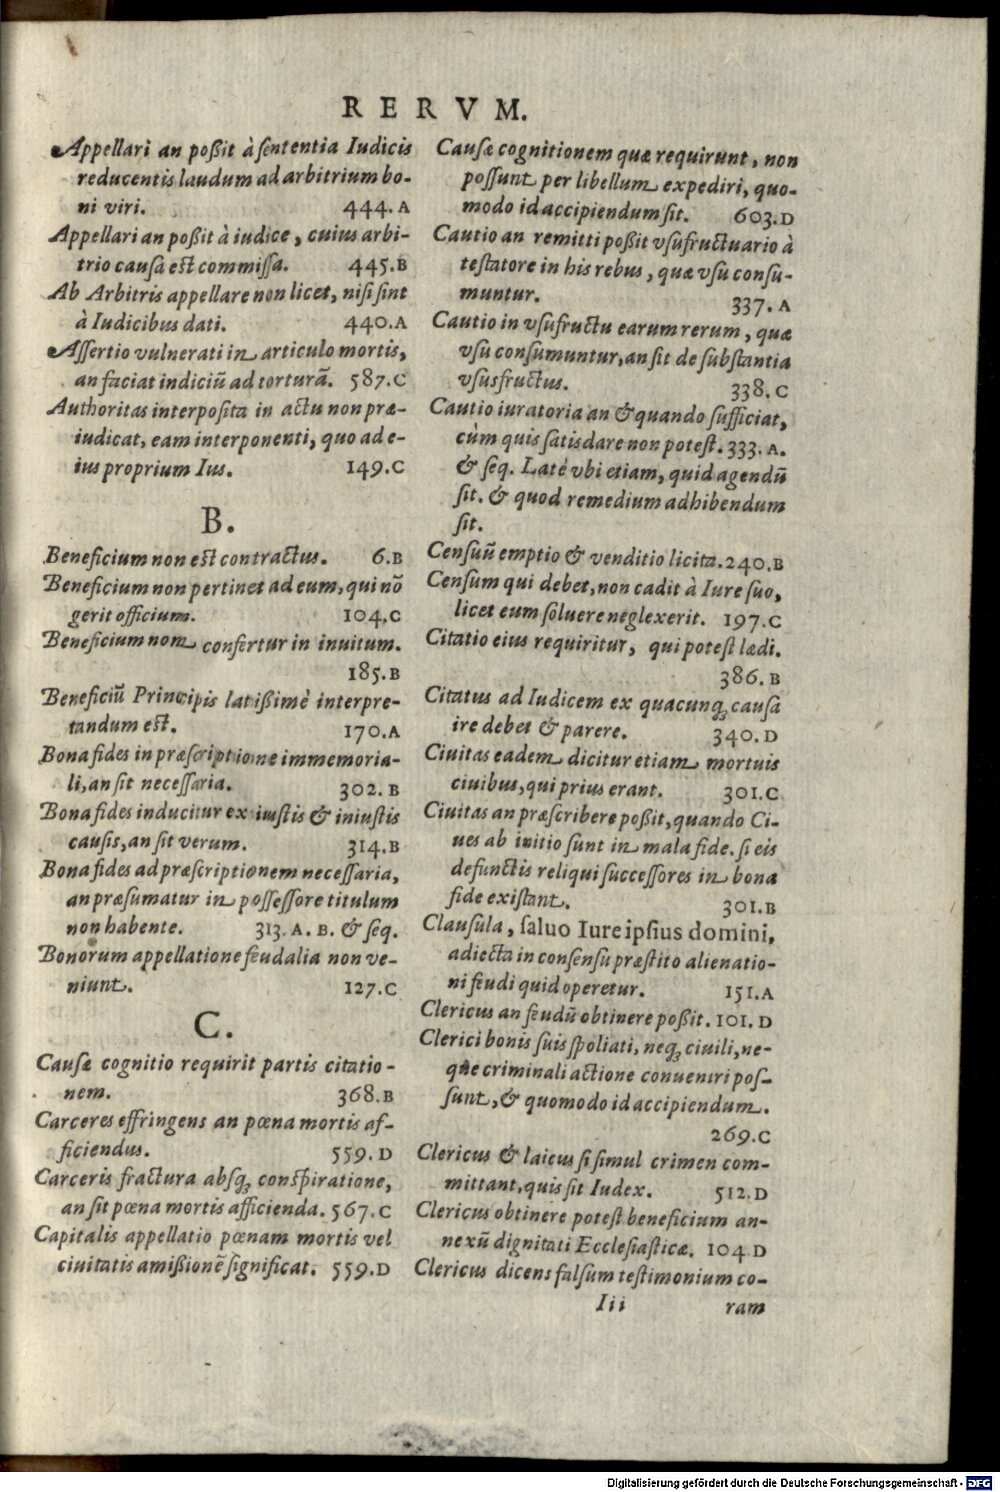 RERVM.
Appellari an poßit à ſententia Iudicis
reducentis laudum ad arbitrium bo-
ni viri. 444. A
Appellari an poßit à iudice, cuius arbi-
trio cauſa eſt commiſſa. 445. B
Ab Arbitris appellare non licet, niſi ſint
à Iudicibus dati. 440. A
Aſſertio vulnerati in articulo mortis,
an faciat indiciũ ad torturã. 587. C
Authoritas interpoſita in actu non præ-
iudicat, eam interponenti, quo ad e-
ius proprium Ius. 149. C
B.
Beneficium non eſt contractus. 6. B
Beneficium non pertinet ad eum, qui nõ
gerit officium. 104. C
Beneficium non confertur in inuitum.
185. B
Beneficiũ Principis latißimè interpre-
tandum eſt. 170. A
Bona fides in præſcriptione immemoria-
li, an ſit neceſſaria. 302. B
Bona fides inducitur ex iuſtis & iniuſtis
cauſis, an ſit verum. 314. B
Bona fides ad præſcriptionem neceſſaria,
an præſumatur in poſſeſſore titulum
non habente. 313. A. B. & ſeq.
Bonorum appellatione feudalia non ve-
niunt. 127. C
C.
Cauſæ cognitio requirit partis citatio-
nem. 368. B
Carceres effringens an pœna mortis af-
ficiendus. 559. D
Carceris fractura abſq; conſpiratione,
an ſit pœna mortis afficienda. 567. C
Capitalis appellatio pœnam mortis vel
ciuitatis amißionẽ ſignificat. 559. D
Cauſæ cognitionem quæ requirunt, non
poſſunt per libellum expediri, quo-
modo id accipiendum ſit. 603. D
Cautio an remitti poßit vſufructuario à
teſtatore in his rebus, quæ vſu conſu-
muntur. 337. A
Cautio in vſufructu earum rerum, quæ
vſu conſumuntur, an ſit de ſubſtantia
vſusfructus. 338. C
Cautio iuratoria an & quando ſufficiat,
cùm quis ſatisdare non poteſt. 333. A.
& ſeq. Latè vbi etiam, quid agendũ
ſit. & quod remedium adhibendum
ſit.
Cenſuũ emptio & venditio licita. 240. B
Cenſum qui debet, non cadit à Iure ſuo,
licet eum ſoluere neglexerit. 197. C
Citatio eius requiritur, qui poteſt lædi.
386. B
Citatus ad Iudicem ex quacunq; cauſa
ire debet & parere. 340. D
Ciuitas eadem dicitur etiam mortuis
ciuibus, qui prius erant. 301. C
Ciuitas an præſcribere poßit, quando Ci-
ues ab initio ſunt in mala fide. ſi eis
defunctis reliqui ſucceſſores in bona
fide exiſtant. 301. B
Clauſula, ſaluo Iure ipſius domini,
adiecta in conſenſu præſtito alienatio-
ni feudi quid operetur. 151. A
Clericus an feudũ obtinere poßit. 101. D
Clerici bonis ſuis ſpoliati, neq; ciuili, ne-
que criminali actione conueniri poſ-
ſunt, & quomodo id accipiendum.
269. C
Clericus & laicus ſi ſimul crimen com-
mittant, quis ſit Iudex. 512. D
Clericus obtinere poteſt beneficium an-
nexũ dignitati Eccleſiaſticæ. 104 D
Clericus dicens falſum teſtimonium co-
Iii ram
Digitalisierung gefördert durch die Deutsche Forschungsgemeinschaft - DFG